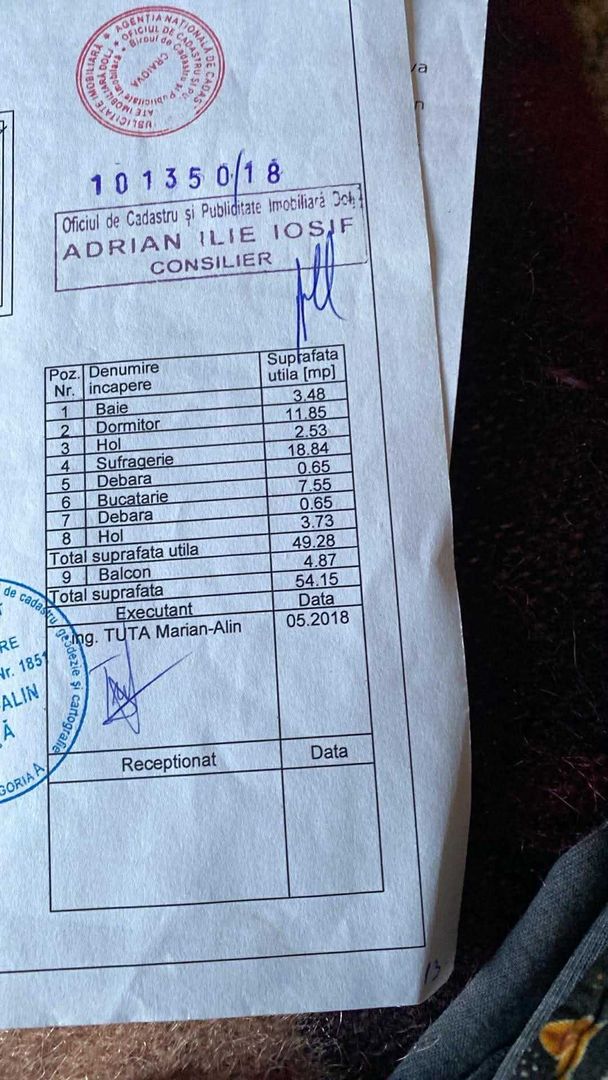 AGENȚIA NAȚIONALĂ DE CADAS
OFICIUL DE CADASTRU ȘI PU
UBLICITATE IMOBILIARĂ
ATE IMOBILIARĂ DOLJ
Biroul de Cadastru și Publicitate Imobiliară
CRAIOVA
101350/18
Oficiul de Cadastru și Publiditate Imobiliară Dolj
ADRIAN ILIE IOSIF
CONSILIER
va
n
Poz. Nr. Denumire incapere Suprafata utila [mp]
1 Baie 3.48
2 Dormitor 11.85
3 Hol 2.53
4 Sufragerie 18.84
5 Debara 0.65
6 Bucatarie 7.55
7 Debara 0.65
8 Hol 3.73
Total suprafata utila 49.28
9 Balcon 4.87
Total suprafata 54.15
Executant Data
ing. TUTA Marian-Alin 05.2018
Receptionat Data
de cadastru, geodezie și cartografie
RE
Nr. 1851
ALIN
Ă
GORIA A
13